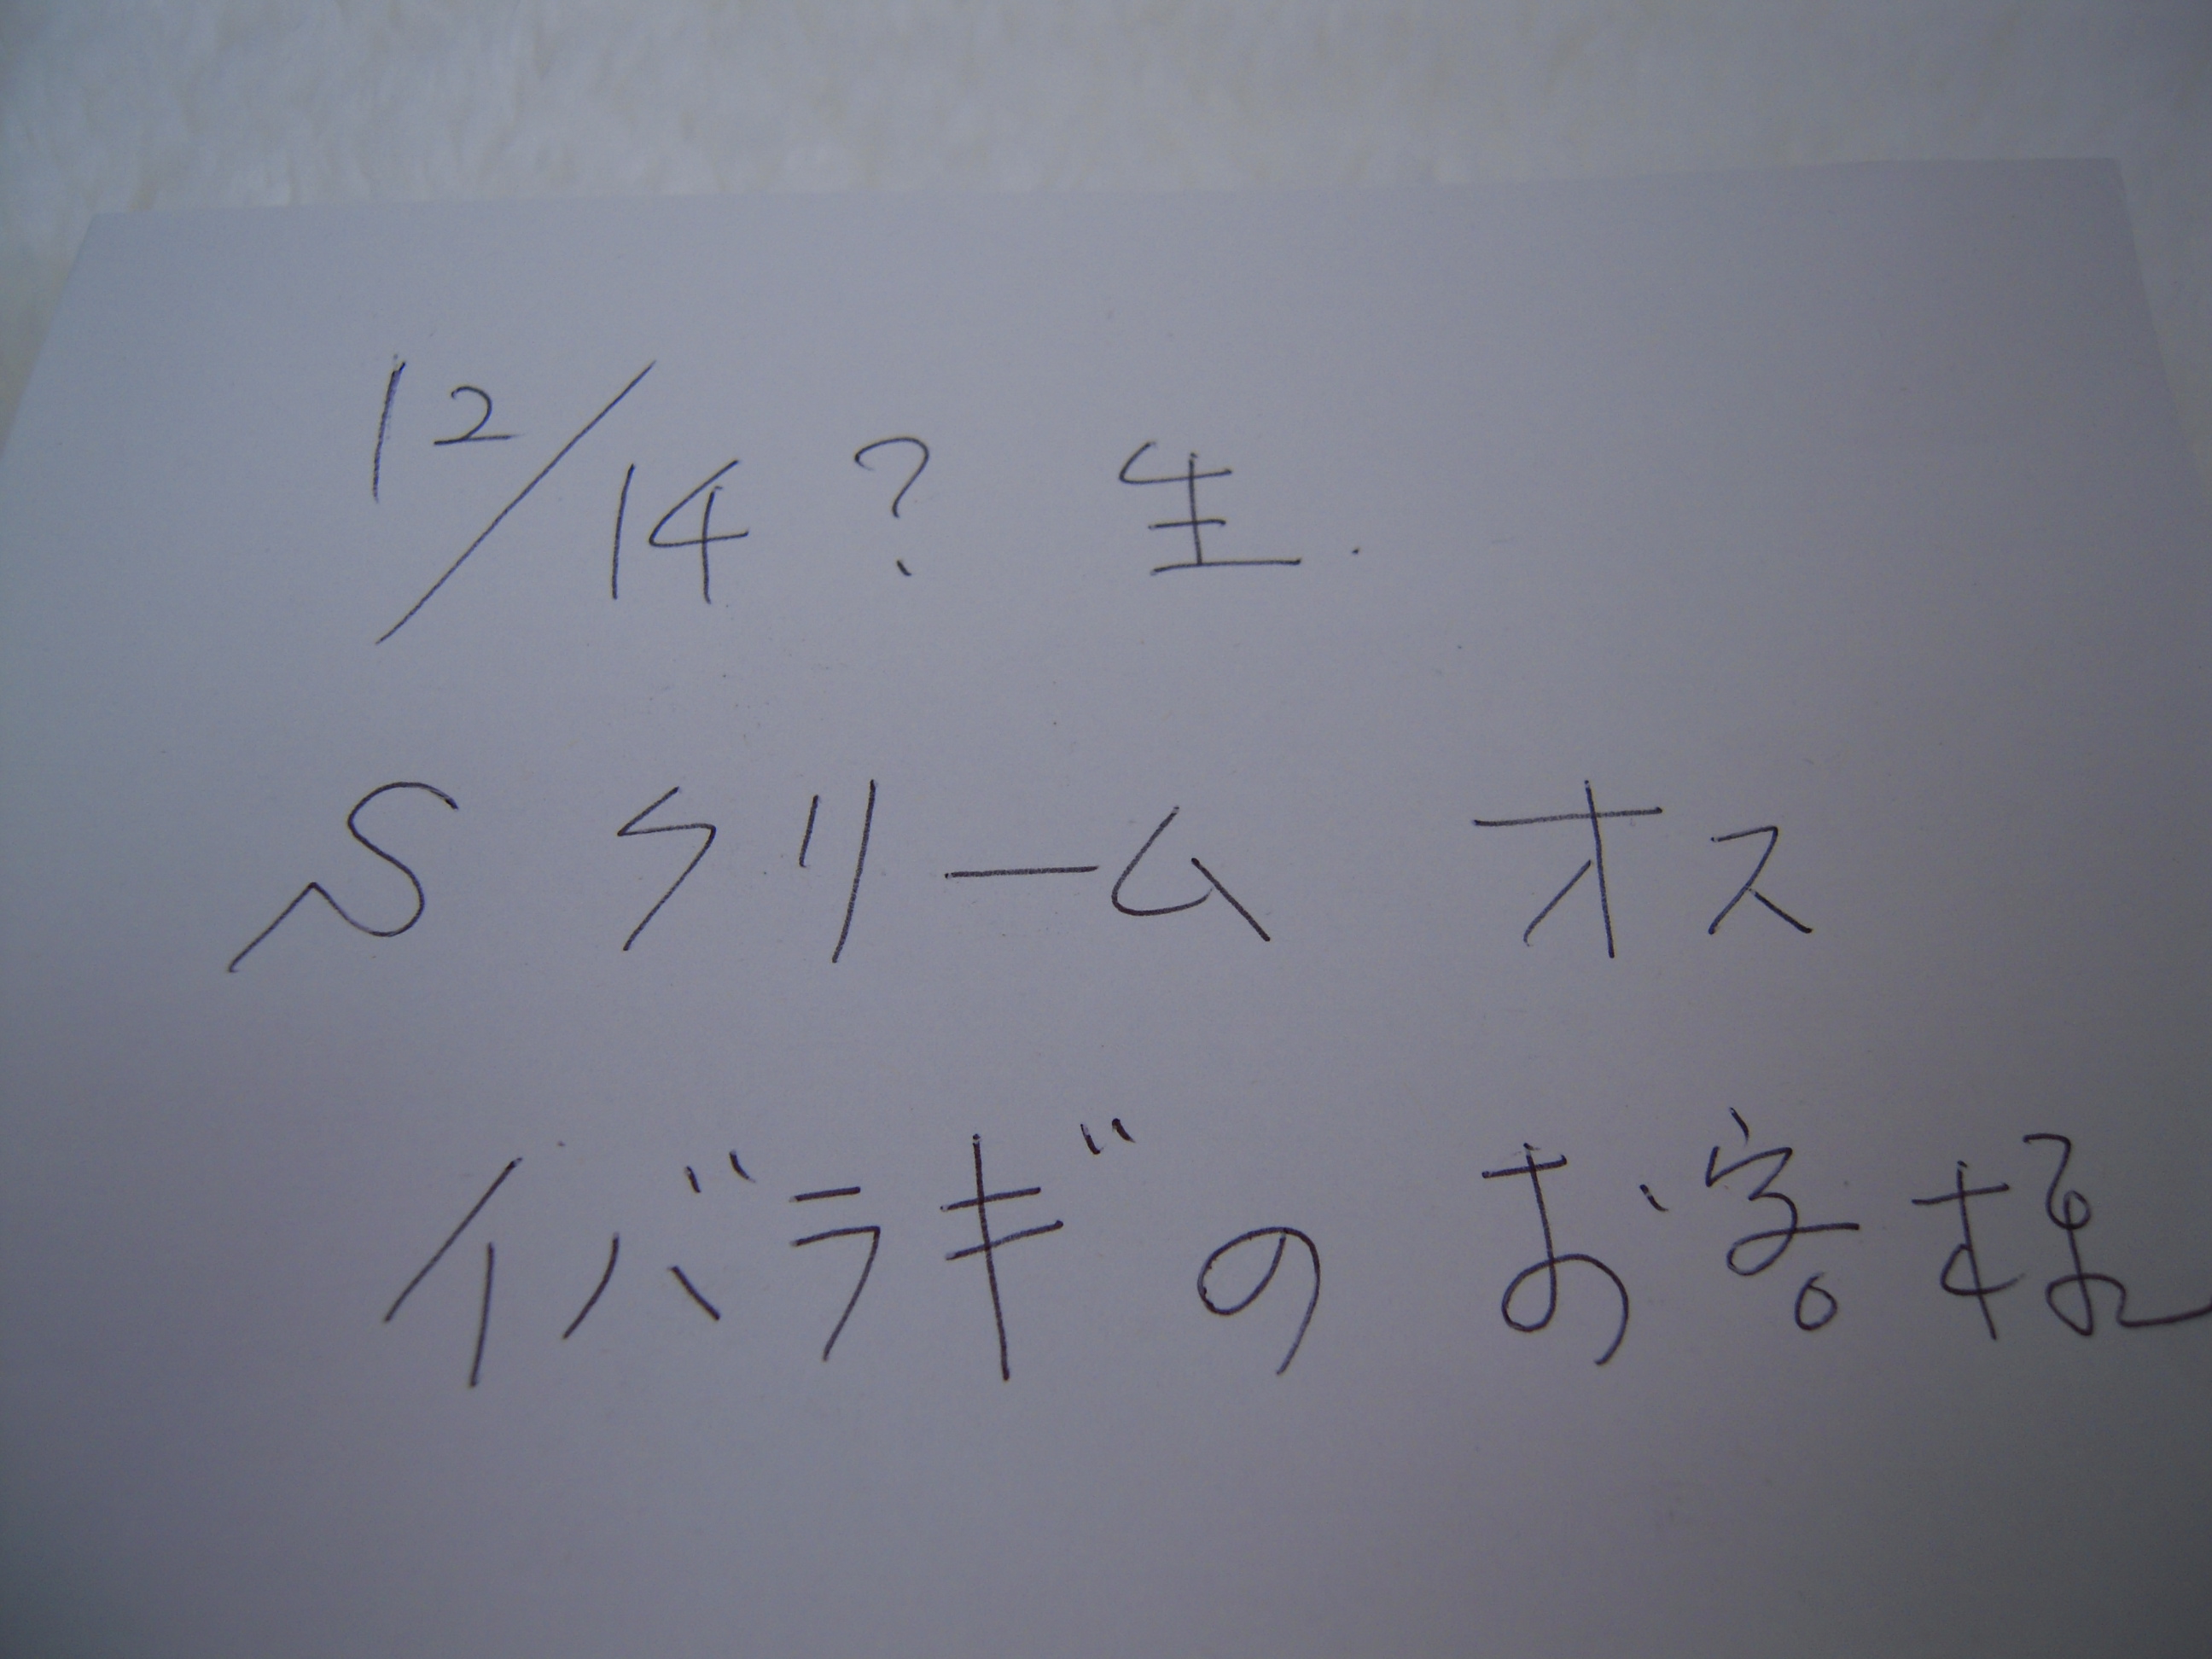 12/14 ? 生.
S クリーム オス
イバラギの お客様